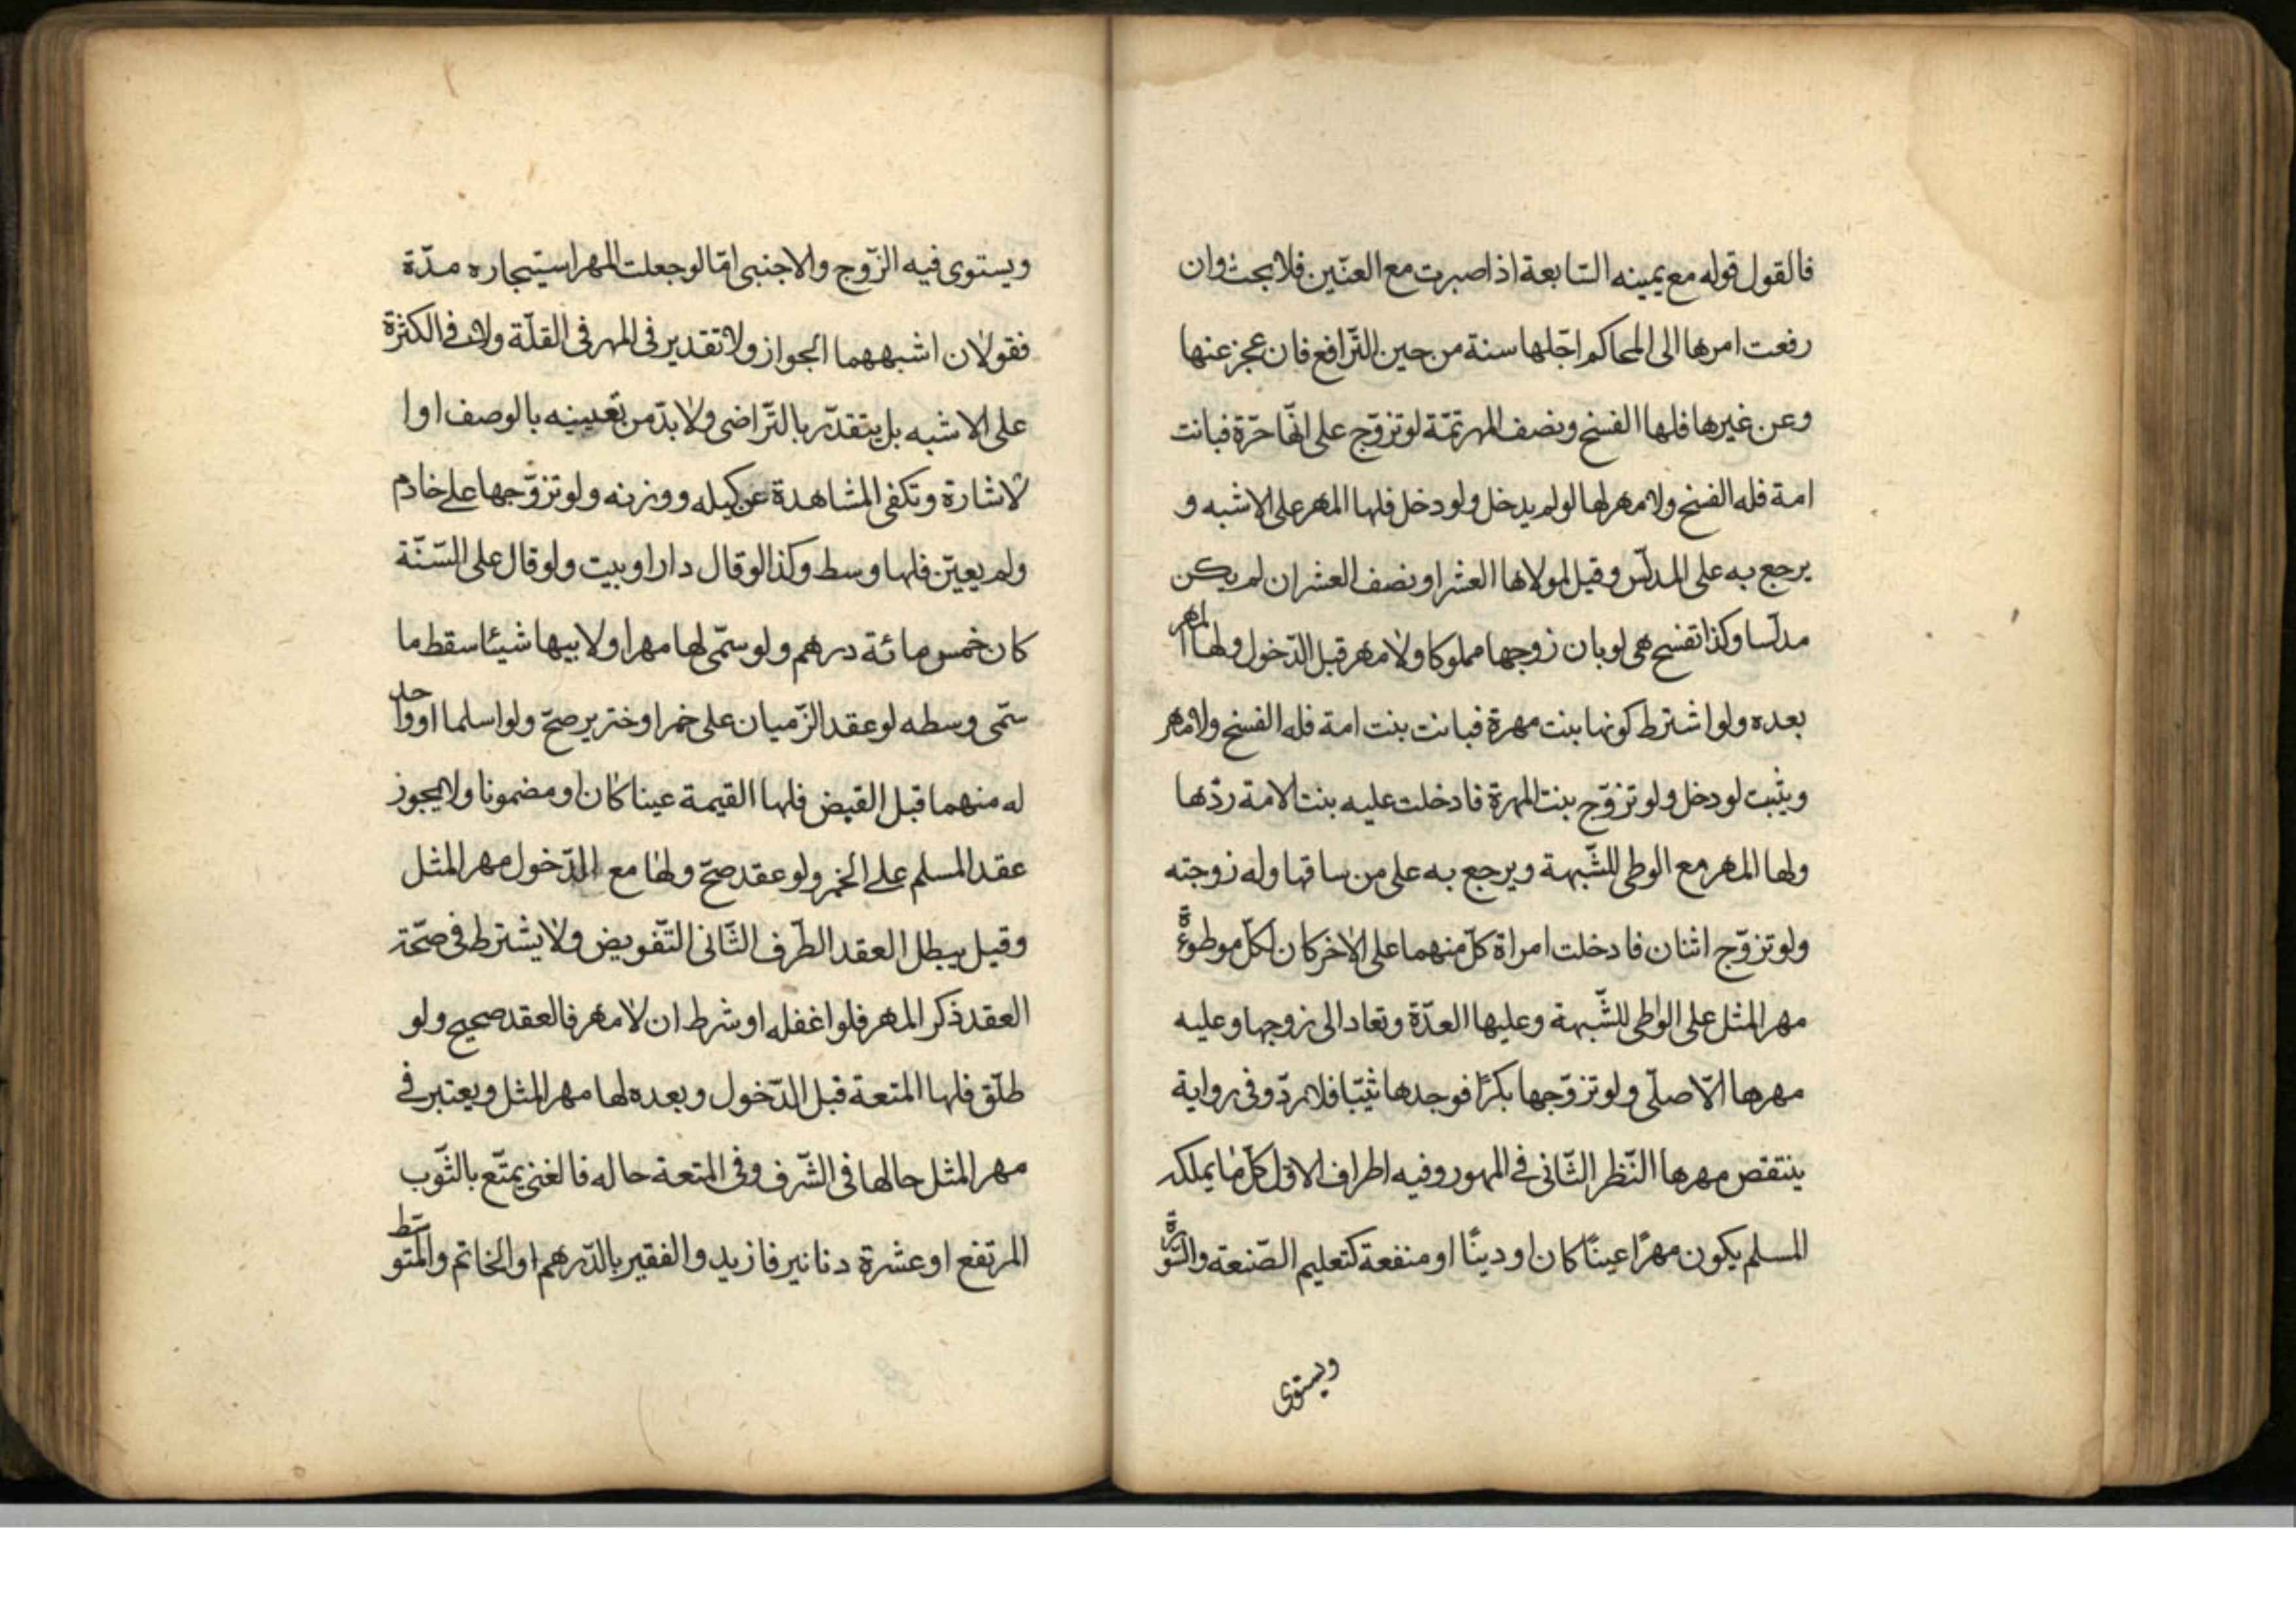 فالقول قوله مع يمينه السّابعة اذا صبرت مع العنّين فلا بحث وان
رفعت امرها الى الحاكم اجّلها سنة من حين التّرافع فان عجز عنها
وعن غيرها فلها الفسخ ونصف المهر تتمّة لو تزوّج على انّها حرّة فبانت
امة فله الفسخ ولا مهر لها لو لم يدخل ولو دخل فلها المهر على الاشبه و
يرجع به على المدلّس وقيل لمولاها العشر او نصف العشر ان لم يكن
مدلّسا وكذا تفسخ هى لو بان زوجها مملوكا ولا مهر قبل الدّخول ولها المهر
بعده ولو اشترط كونها بنت مهرة فبانت بنت امة فله الفسخ ولا مهر
ويثبت لو دخل ولو تزوّج بنت المهرة فادخلت عليه بنت الامة ردّها
ولها المهر مع الوطى للشّبهة ويرجع به على من ساقها وله زوجته
ولو تزوّج اثنان فادخلت امراة كلّ منهما على الاخر كان لكلّ موطوءة
مهر المثل على الواطى للشّبهة وعليها العدّة وتعاد الى زوجها وعليه
مهرها الاصلّى ولو تزوّجها بكرًا فوجدها ثيّبا فلا ردّ وفى رواية
ينتقص مهرها النّظر الثّانى فى المهور وفيه اطراف الاوّل كلّ ما يملكه
المسلم يكون مهرًا عينًا كان او دينًا او منفعة كتعليم الصّنعة والسّورة
ويستوى
ويستوى فيه الزّوج والاجنبى امّا لو جعلت المهر استيجاره مدّة
فقولان اشبههما الجواز ولا تقدير فى المهر فى القلّة ولا فى الكثرة
على الاشبه بل يتقدّر بالتّراضى ولا بدّ من تعيينه بالوصف او ا
لاشارة وتكفى المشاهدة عن كيله ووزنه ولو تزوّجها على خادم
ولم يعيّن فلها وسط وكذا لو قال دار او بيت ولو قال على السّنّة
كان خمس مائة درهم ولو سمّى لها مهرا ولابيها شيئا سقط ما
سمّى وسطه لو عقد الزّميان على خمر او خنزير صحّ ولو اسلما او واحد
له منهما قبل القبض فلها القيمة عينا كان او مضمونا ولا يجوز
عقد المسلم على الخمر ولو عقد صحّ ولها مع الدّخول مهر المثل
وقيل يبطل العقد الطّرف الثّانى التّفويض ولا يشترط فى صحّة
العقد ذكر المهر فلو اغفله او شرط ان لا مهر فالعقد صحيح ولو
طلّق فلها المتعة قبل الدّخول وبعده لها مهر المثل ويعتبر فى
مهر المثل حالها فى الشّرف وفى المتعة حاله فالغنى يمتّع بالثّوب
المرتفع او عشرة دنانير فازيد والفقير بالدّرهم او الخاتم والمتوسّط